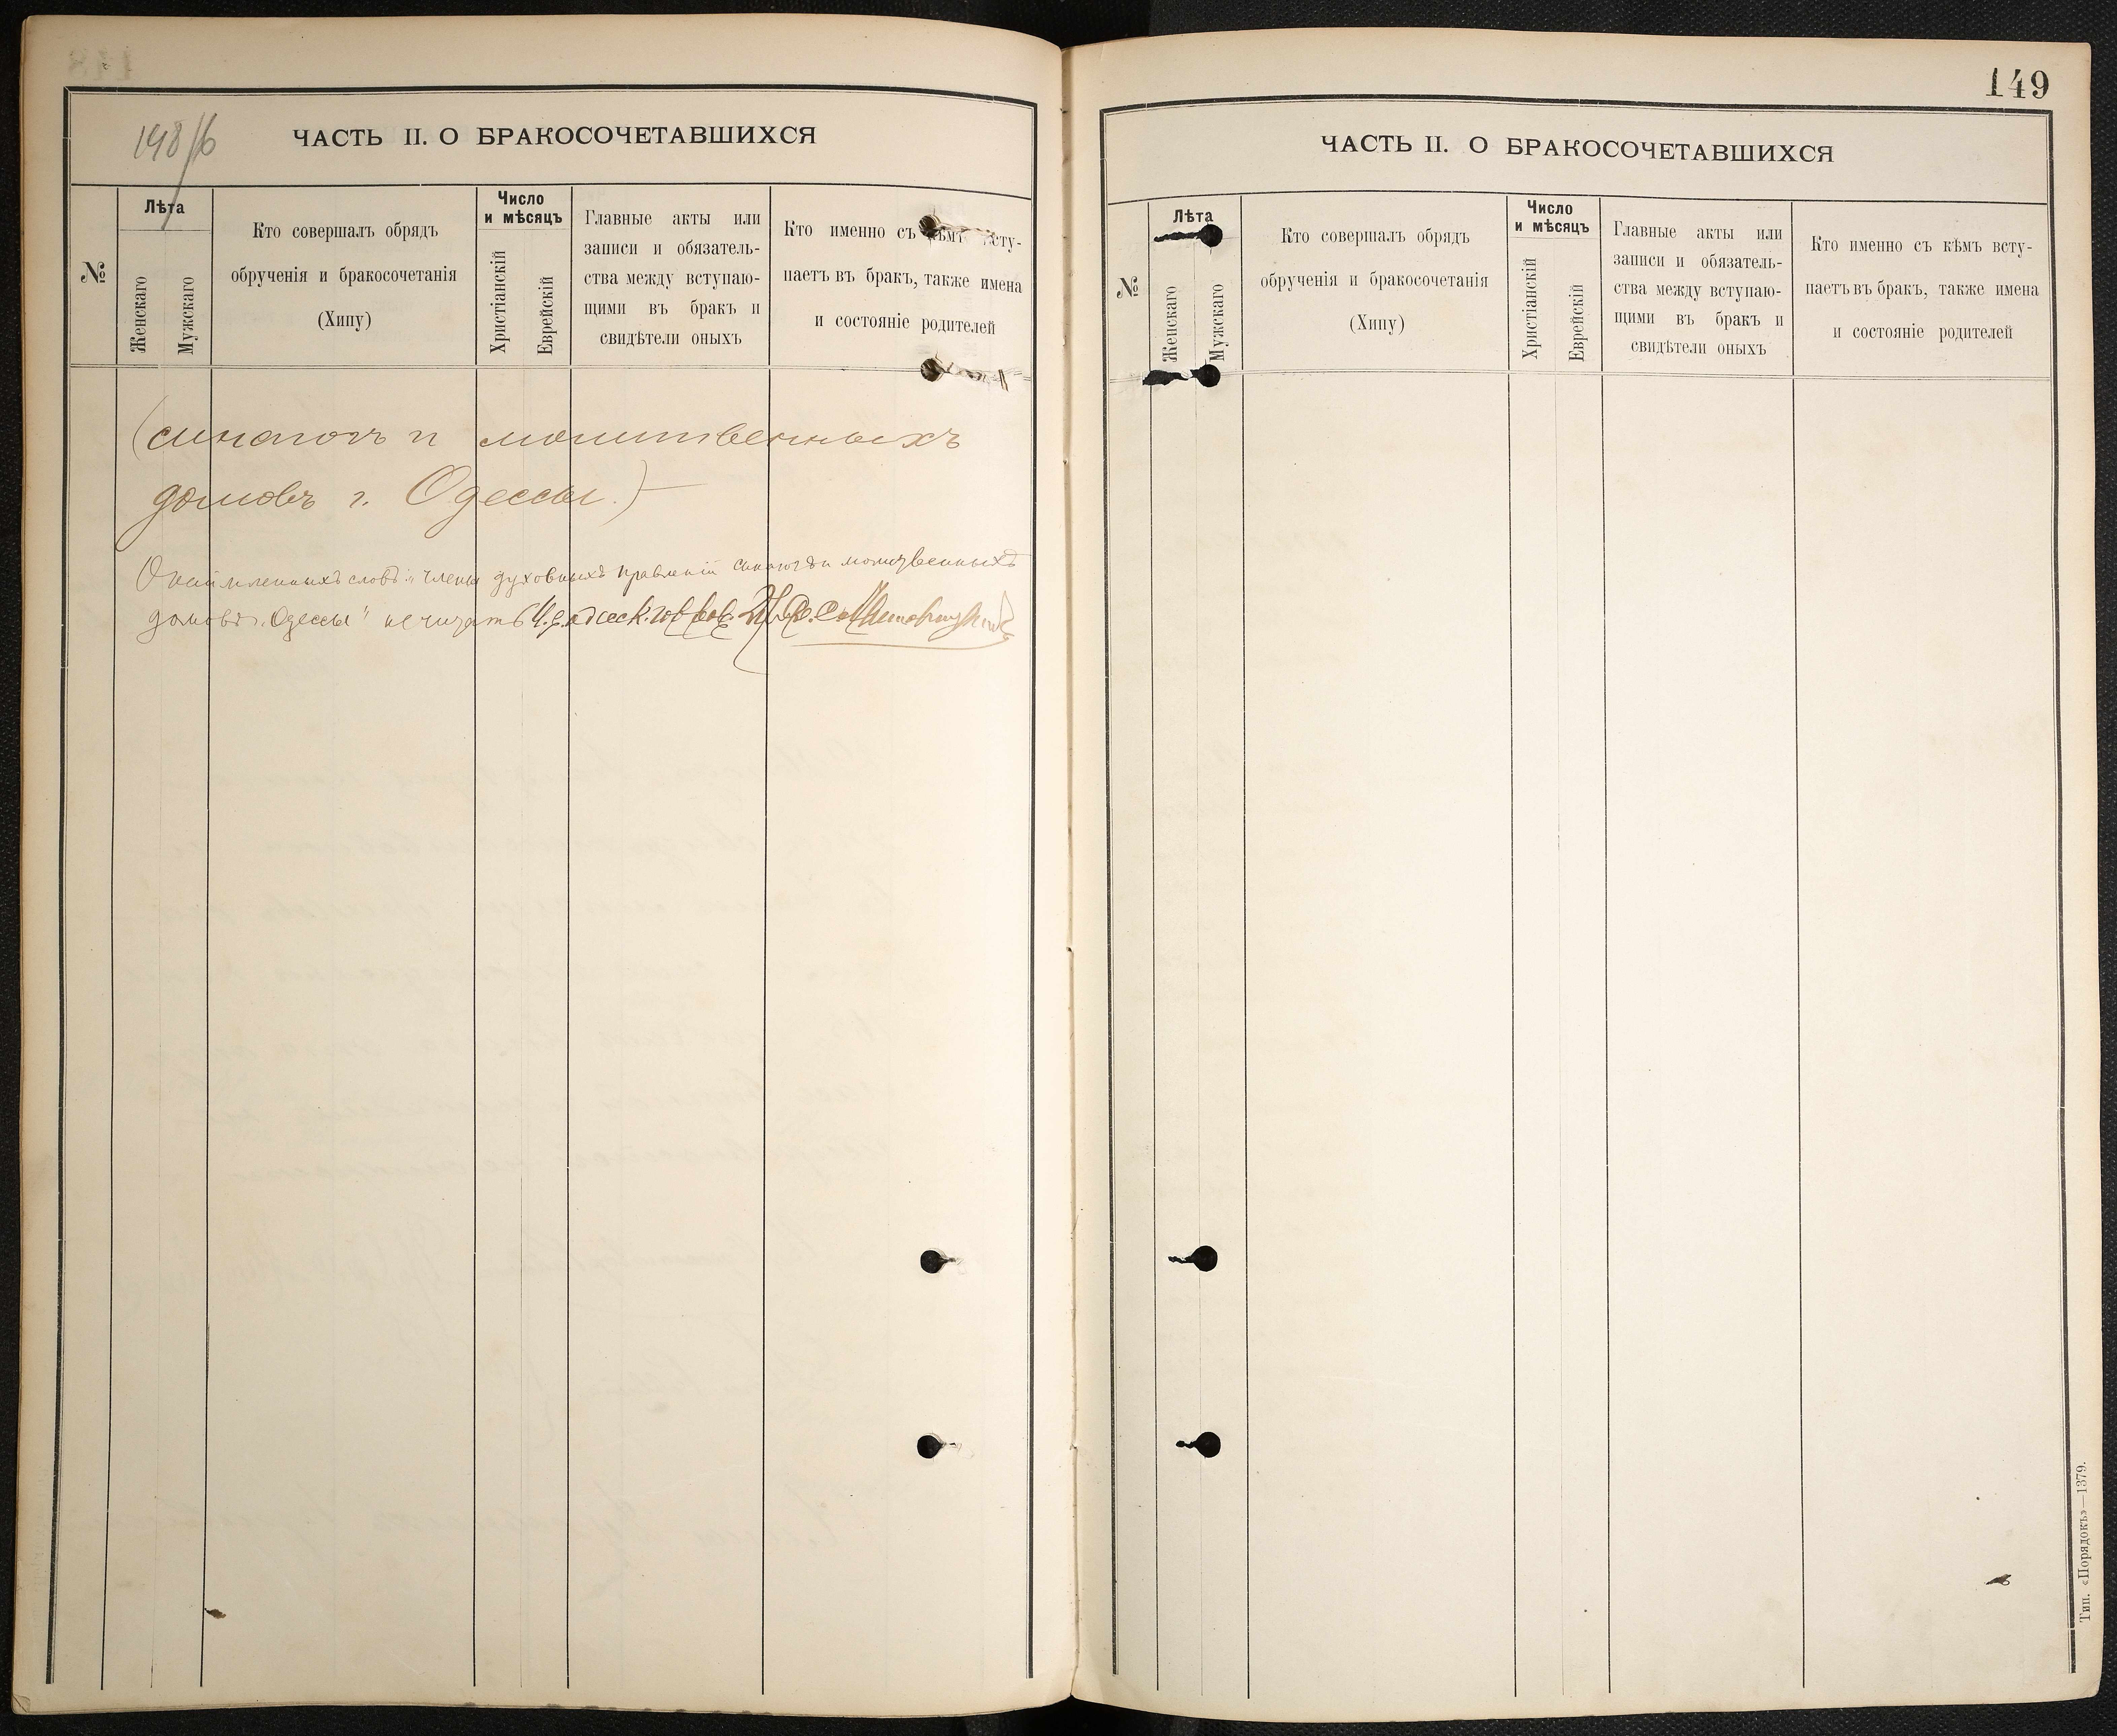 148/б
ЧАСТЬ II. О БРАКОСОЧЕТАВШИХСЯ
№
Лѣта
Женскаго
Мужскаго
Кто совершалъ обрядъ
обрученія и бракосочетанія
(Хипу)
Число
и мѣсяцъ
Христіанскій
Еврейскій
Главные акты или
записи и обязатель-
ства между вступаю-
щими въ бракъ и
свидѣтели оныхъ
Кто именно съ кѣмъ всту-
паетъ въ бракъ, также имена
и состояніе родителей
(синагогъ и молитвенныхъ
домовъ г. Одессы.)
словъ: "члены духовныхъ правленій синагогъ и молитвенныхъ
домовъ г. Одессы" не читать
149
ЧАСТЬ II. О БРАКОСОЧЕТАВШИХСЯ
№
Лѣта
Женскаго
Мужскаго
Кто совершалъ обрядъ
обрученія и бракосочетанія
(Хипу)
Число
и мѣсяцъ
Христіанскій
Еврейскій
Главные акты или
записи и обязатель-
ства между вступаю-
щими въ бракъ и
свидѣтели оныхъ
Кто именно съ кѣмъ всту-
паетъ въ бракъ, также имена
и состояніе родителей
Тип. «Порядокъ»—1379.